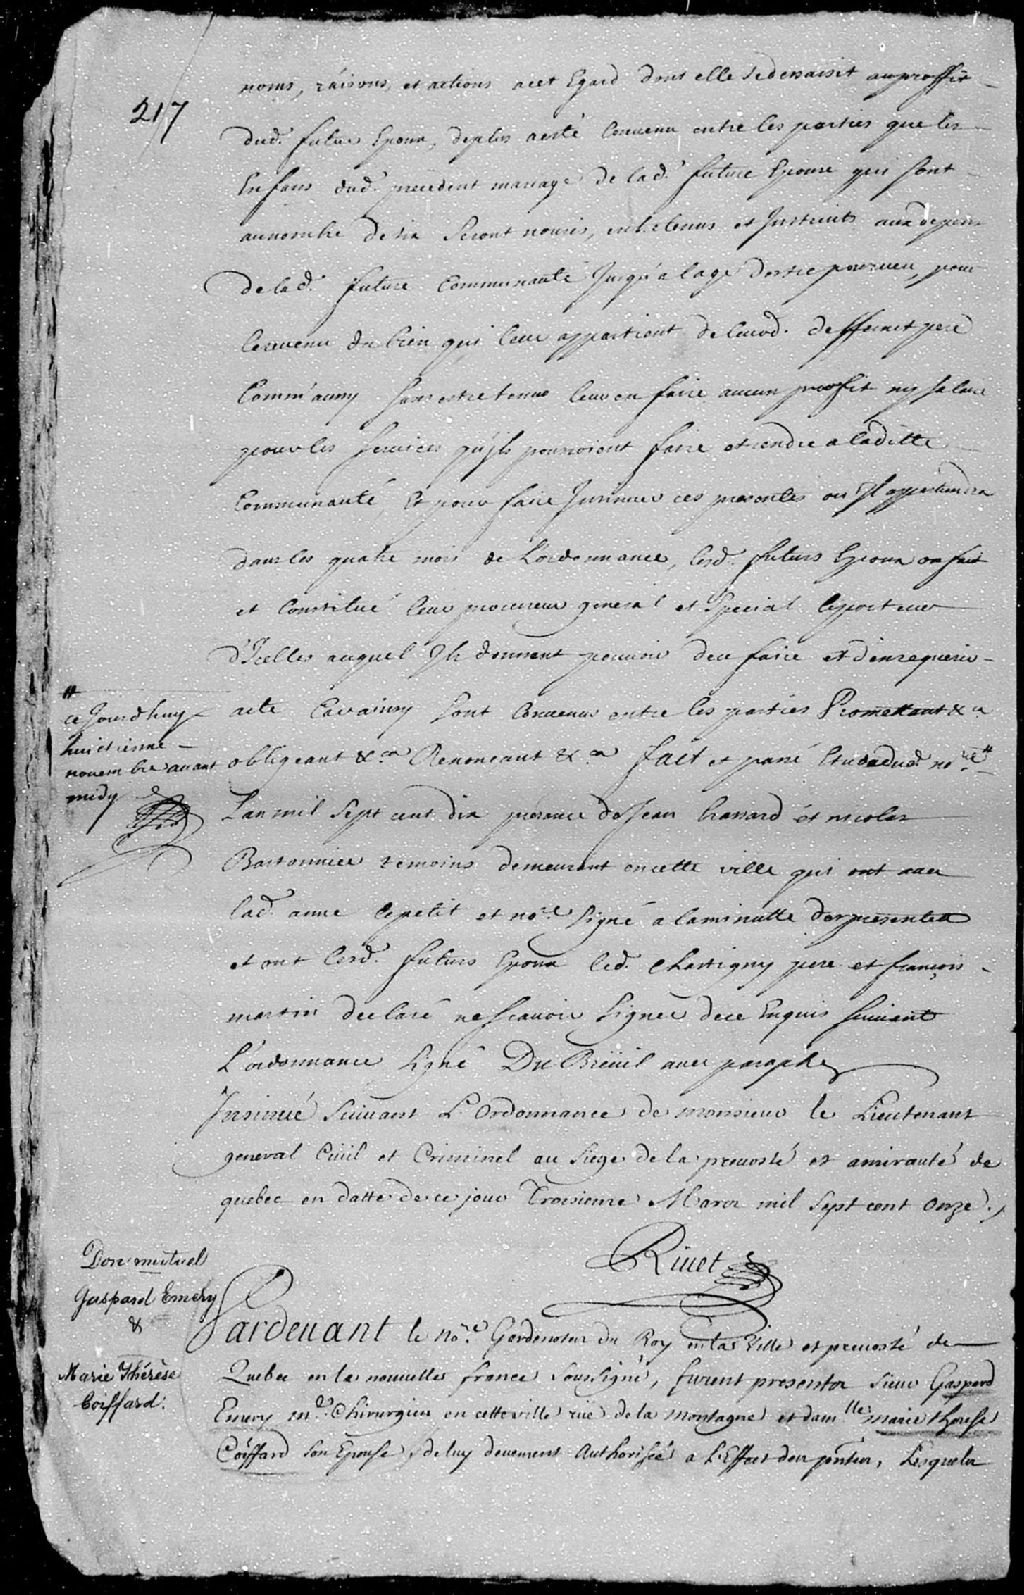 217
noms, raisons, et actions acet Egard dont elle sedemaisit auproffit
dud. futur Epoux, deplus aesté Convenu entre les parties que les
Enfans dud. precedent mariage de lad. future Epouse qui sont
aunombre de six seront nouris, entretenus et Instruits aux depens
de lad. future Communauté Jusqu'a lage destre pourveu, pour
Lerevenu du bien qui leur appartient de leurd. deffunct pere
Comm'aussy sans estre tenus leur en faire aucun proffit ny salaire
pour les services qu'ils pourroient faire et rendre a laditte
Communauté, Et pour faire Insinuer ces presentes ou Il appartiendra
dans les quatre mois de L'ordonnance, lesd. futurs Epoux on fait
et Constitué leur procureur general et special leporteur
d'Icelles auquel Ils donnent pouvoir deu faire et d'enrequerir
acte Car ainsy sont Convenus entre les parties Promettant &ca
obligeant &ca Renoncant &ca fait et passé Etude dud. nore #
# ce Jourdhuy
huictiesme
novembre avant
midy
Lan mil sept cent dix presence de Jean Chassard et nicolas
Bastonnier temoins demeurant encette ville qui ont avec
lad. anne lepetit et nore signé a laminutte des presentes
et ont lesd. futurs Epoux led. Chastigny pere et françois
martin declaré nescavoir signer dece Enquis suivant
L'ordonnance signé Du Breuil avec paraphe
Insinué suivant L'Ordonnance de monsieur le Lieutenant
general Ciuil et Criminel au siege de la preuosté et amirauté de
quebec en datte de ce jour Troisieme Mars mil sept cent Onze ./
Riuet
Don mutuel
Gaspard Emery
&
Marie Thérèse
Coiffard:
Pardeuant le nore Gardenotes du Roy en la Ville et preuosté de
Quebec en la nouuelle france soussigné, furent presents Sieur Gaspard
Emery me Chirurgien en cette ville rüe de la montagne et damlle marie therese
Coiffard son Epouse, de luy deuement Authorisée a L'Effect des pntes, Lesquels